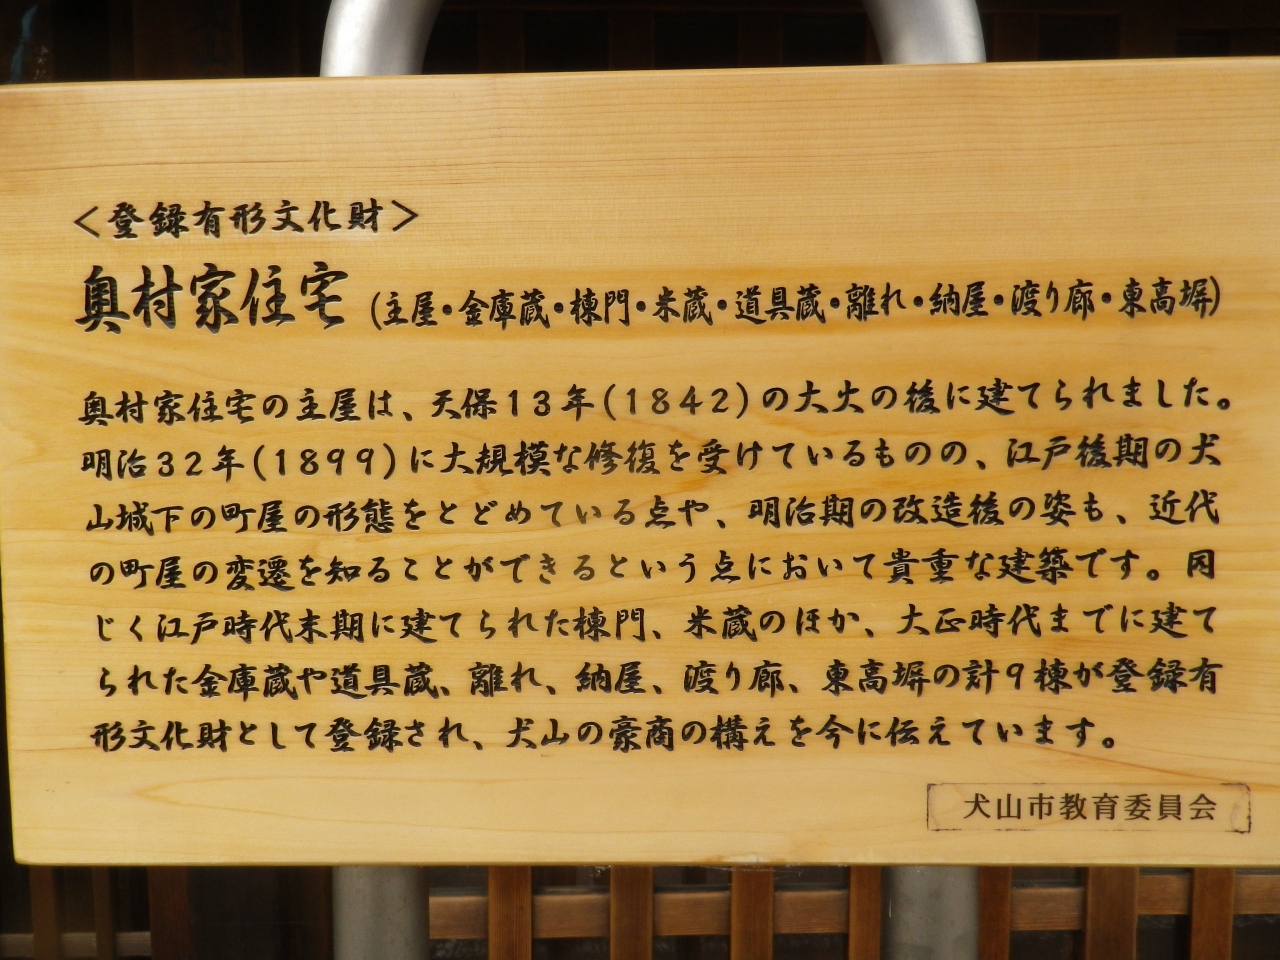 ＜登録有形文化財＞
奥村家住宅(主屋・金庫蔵・棟門・米蔵・道具蔵・離れ・納屋・渡り廊・東高塀)
奥村家住宅の主屋は、天保13年(1842)の大火の後に建てられました。
明治32年(1899)に大規模な修復を受けているものの、江戸後期の犬
山城下の町屋の形態をとどめている点や、明治期の改造後の姿も、近代
の町屋の変遷を知ることができるという点において貴重な建築です。同
じく江戸時代末期に建てられた棟門、米蔵のほか、大正時代までに建て
られた金庫蔵や道具蔵、離れ、納屋、渡り廊、東高塀の計9棟が登録有
形文化財として登録され、犬山の豪商の構えを今に伝えています。
犬山市教育委員会